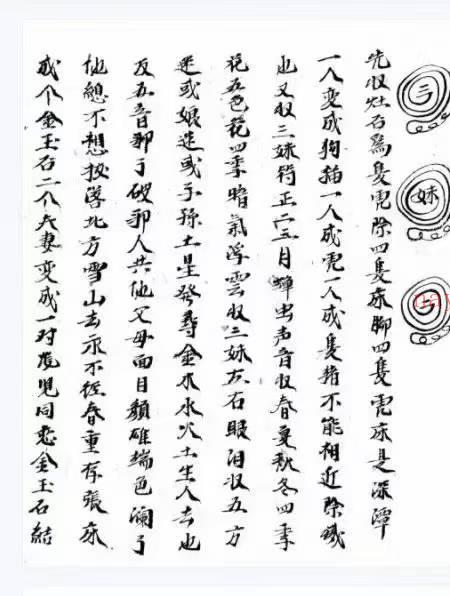 三
妹
先收灶石為隻除四隻床腳四隻床是深潭
一人變成狗猫一人成一人成隻猪不能相近除鐵
也又收三妹符正二三月蟬虫声音收春夏秋冬四季
花五色花四季暗氣浮雲收三妹左右眼泪收五方
迷或娘迷或子孫土星發尋金木水火土生人去也
反五音邪了破邪人共他父母面目類碓端色瀾了
他總不想落北方雪山去永不經春重存張床
成个金玉石二个夫妻變成一对児同恋金玉石結